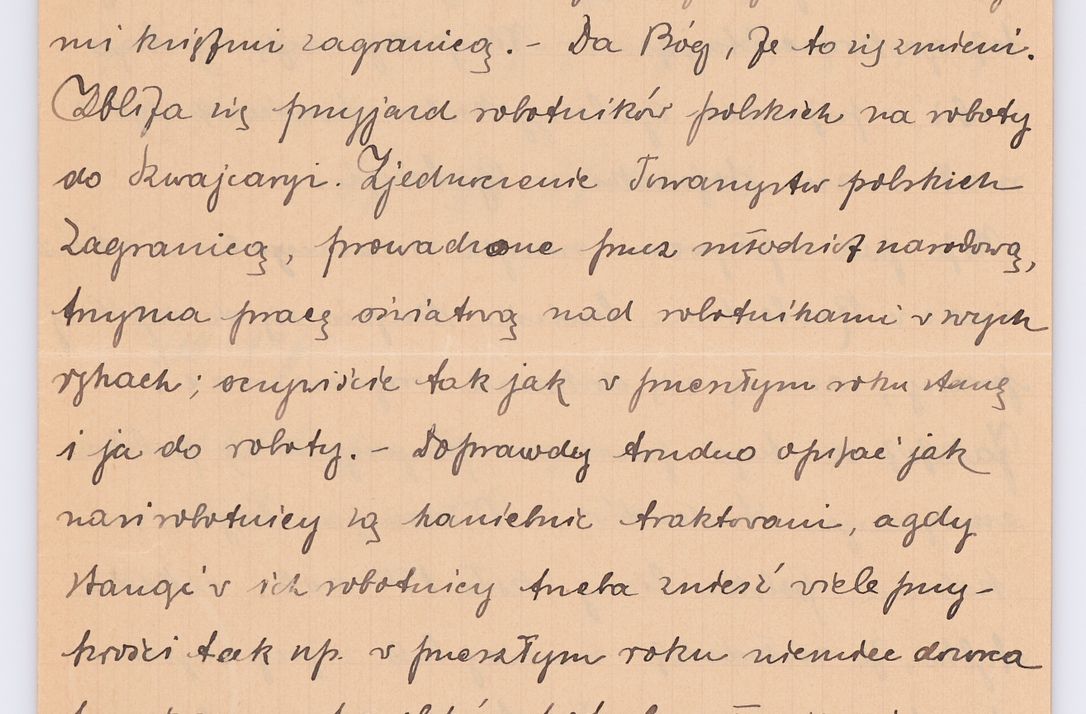 mi księżmi zagranicą. – Da Bóg, że to się zmieni.
Zbliża się przyjazd robotników polskich na roboty
do Szwajcaryi. Zjednoczenie Towarzystw polskich
Zagranicą, prowadzone przez młodzież narodową,
trzyma pracę oświatową nad robotnikami w swych
rękach; oczywiście tak jak w przeszłym roku stanę
i ja do roboty. – Doprawdy trudno opisać jak
nasi robotnicy są haniebnie traktowani, a gdy
stanąć w ich robotnicy trzeba znieść wiele przy-
krości tak np. w przeszłym roku niemiec dozorca